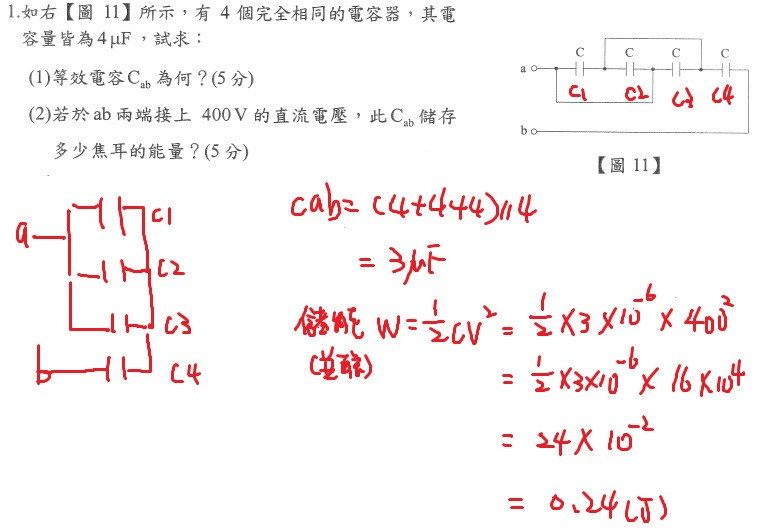 1.如右【圖 11】所示，有 4 個完全相同的電容器，其電
容量皆為4μF，試求：
(1)等效電容Cab 為何？(5 分)
(2)若於ab兩端接上 400V 的直流電壓，此Cab 儲存
多少焦耳的能量？(5 分)
C C C C
a
C1 C2 C3 C4
b
【圖 11】
a
C1
C2
C3
b
C4
Cab = (4+4+4)//4
= 3μF
儲能 W = 1/2 CV² = 1/2 × 3 × 10⁻⁶ × 400²
= 1/2 × 3×10⁻⁶ × 16 × 10⁴
= 24 × 10⁻²
= 0.24 (J)